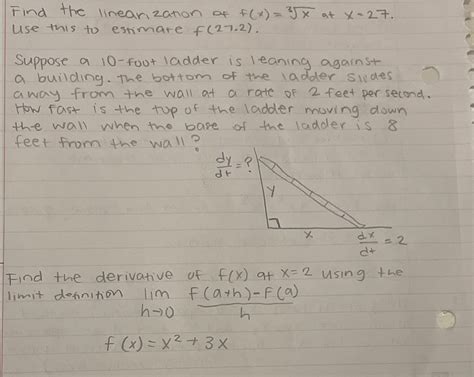 Find the linearization of f(x) = ∛x at x=27.
Use this to estimate f(27.2).
Suppose a 10-foot ladder is leaning against
a building. The bottom of the ladder slides
away from the wall at a rate of 2 feet per second.
How fast is the top of the ladder moving down
the wall when the base of the ladder is 8
feet from the wall?
dy/dt = ?
y
x
dx/dt = 2
Find the derivative of f(x) at x=2 using the
limit definition lim h→0 f(a+h)-f(a)/h
f(x) = x² + 3x